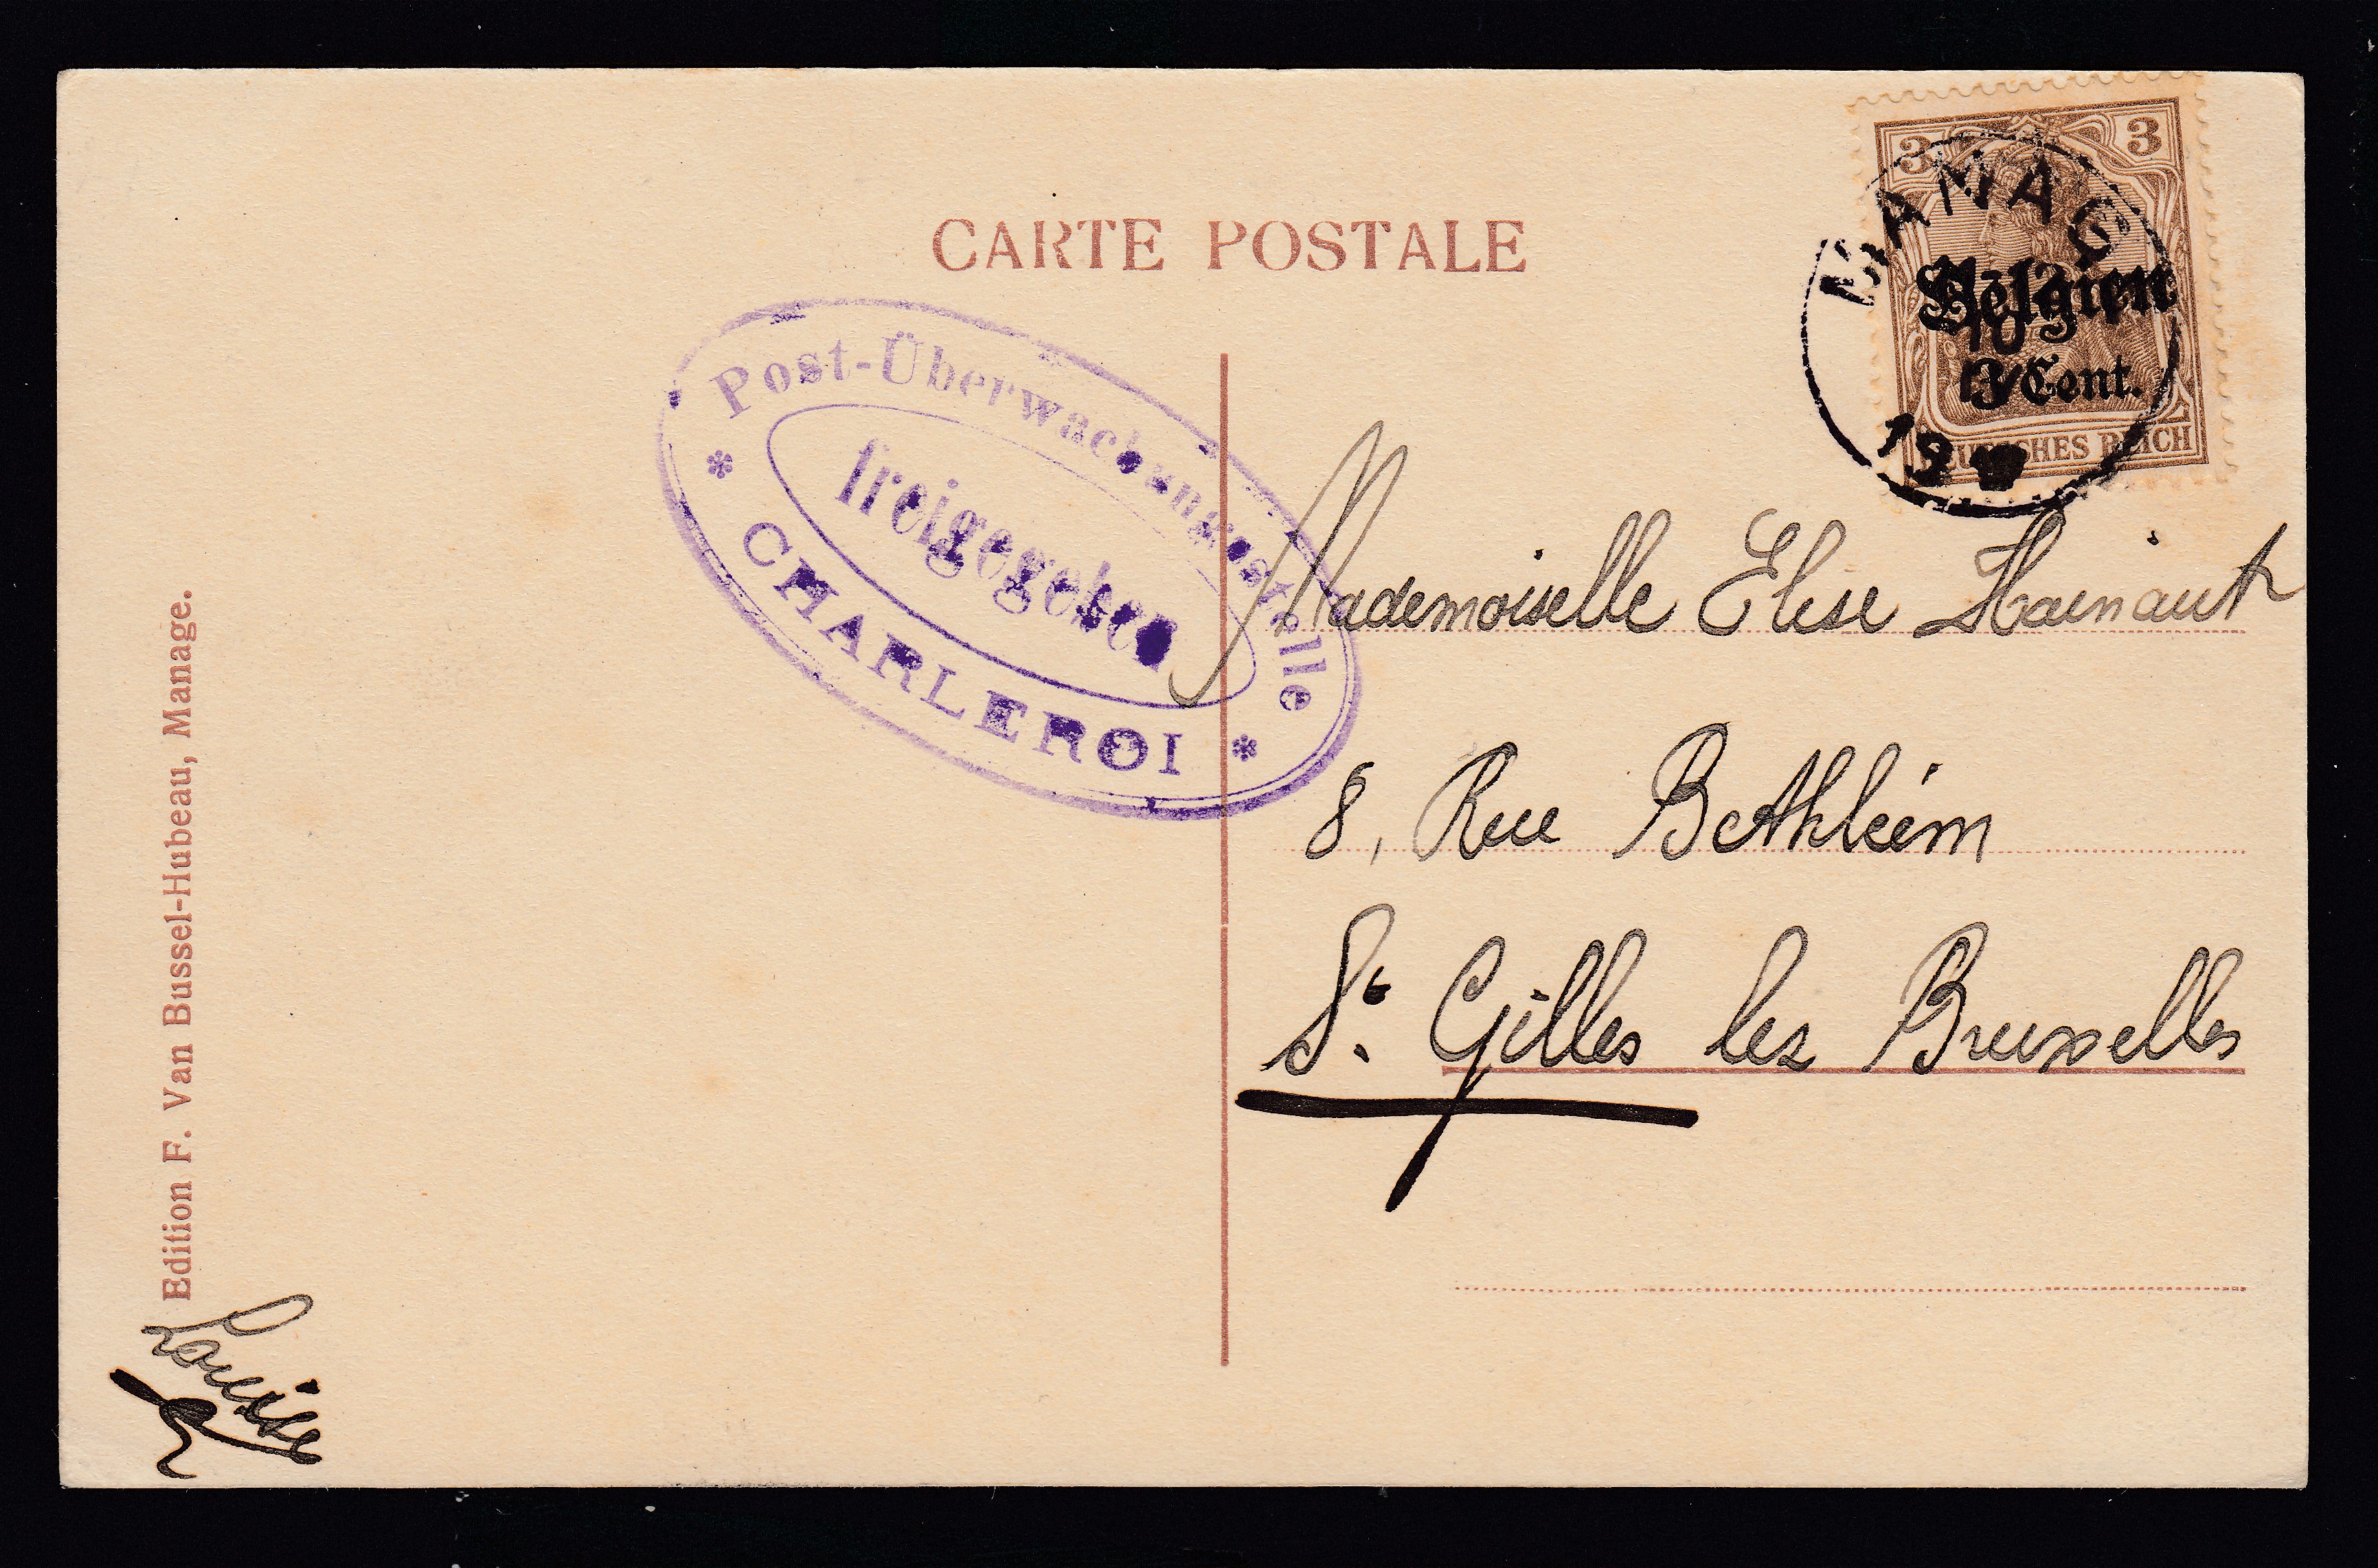 CARTE POSTALE
3 3
Belgien
3 Cent.
DEUTSCHES REICH
10
19
Post-Überwachungsstelle
freigegeben
* CHARLEROI *
Mademoiselle Elise Hainaut
8, Rue Bethléem
St. Gilles lez Bruxelles
Edition F. Van Bussel-Hubeau, Manage.
Louise